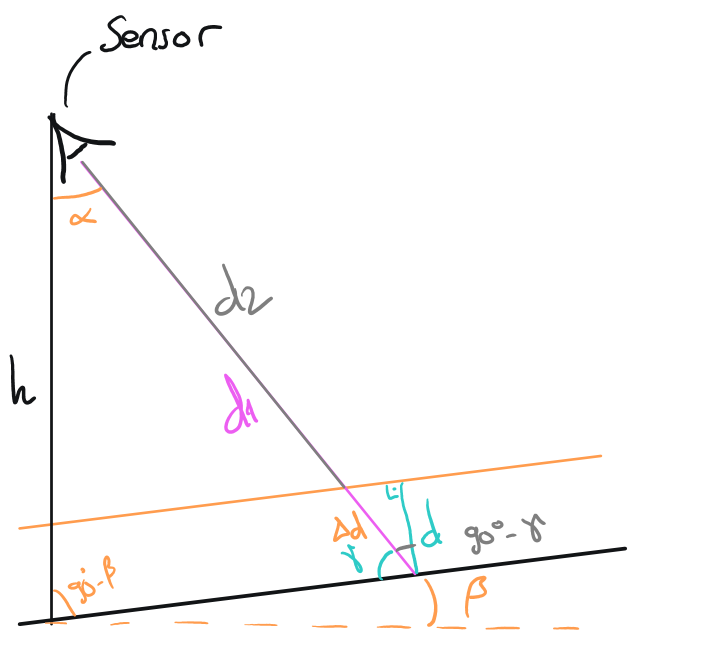 Sensor
α
d2
h
d1
Δd
d
90°-γ
γ
90°-β
β